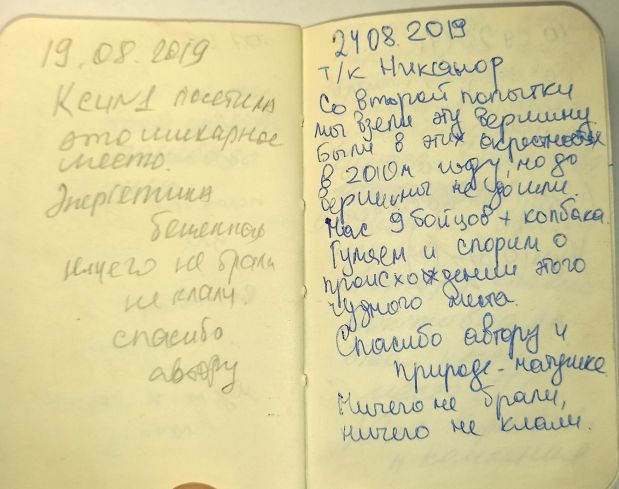 19.08.2019
посетила
это шикарное
место.
Энергетика
бешенная
ничего не брали
не клали.
спасибо
автору
24.08.2019
т/к Никанор
Со второй попытки
мы взяли эту вершину.
Были в этих окрестностях
в 2010м году, но до
вершины не дошли.
Нас 9 бойцов + колбаса.
Гуляем и спорим о
происхождении этого
чудного места.
Спасибо автору и
природе-матушке
Ничего не брали,
ничего не клали.